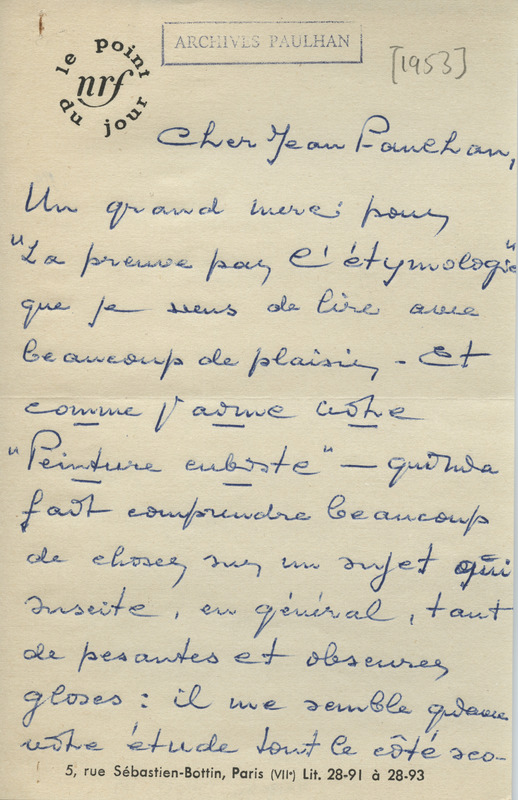 le point
nrf
du jour
ARCHIVES PAULHAN
[1953]
Cher Jean Paulhan,
Un grand merci pour
"La preuve par l'étymologie"
que je viens de lire avec
beaucoup de plaisir. Et
comme j'aime votre
"Peinture cubiste" — qui m'a
fait comprendre beaucoup
de choses sur un sujet qui
suscite, en général, tant
de pesantes et obscures
gloses : il me semble qu'avec
votre étude tout le côté sco-
5, rue Sébastien-Bottin, Paris (VIIe) Lit. 28-91 à 28-93